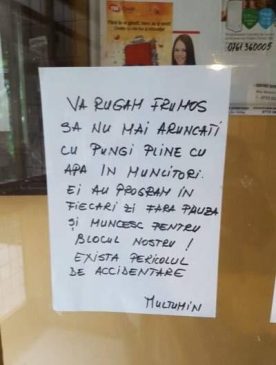 0761 360005
VA RUGAM FRUMOS
SA NU MAI ARUNCATI
CU PUNGI PLINE CU
APA IN MUNCITORI.
EI AU PROGRAM IN
FIECARI ZI FARA PAUZA
ȘI MUNCESC PENTRU
BLOCUL NOSTRU!
EXISTA PERICOLUL
DE ACCIDENTARE
MULTUMIN